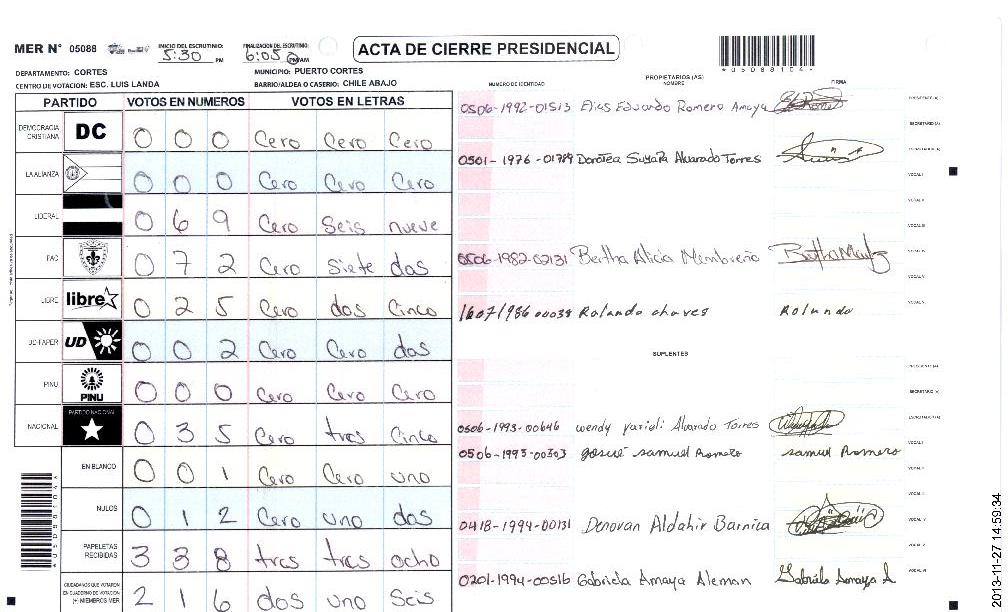 MER N° 05088
INICIO DEL ESCRUTINIO: 5:30 PM
FINALIZACION DEL ESCRUTINIO: 6:05 PM/AM
ACTA DE CIERRE PRESIDENCIAL
*05088104*
DEPARTAMENTO: CORTES MUNICIPIO: PUERTO CORTES
CENTRO DE VOTACION: ESC. LUIS LANDA BARRIO/ALDEA O CASERIO: CHILE ABAJO
PARTIDO VOTOS EN NUMEROS VOTOS EN LETRAS
DEMOCRACIA CRISTIANA DC 0 0 0 Cero Cero Cero
LA ALIANZA 0 0 0 Cero Cero Cero
LIBERAL 0 6 9 Cero Seis nueve
PAC 0 7 2 Cero Siete dos
LIBRE libre 0 2 5 Cero dos Cinco
UD-FAPER UD 0 0 2 Cero Cero dos
PINU PINU 0 0 0 Cero Cero Cero
NACIONAL PARTIDO NACIONAL 0 3 5 Cero tres Cinco
EN BLANCO 0 0 1 Cero Cero uno
NULOS 0 1 2 Cero uno dos
PAPELETAS RECIBIDAS 3 3 8 tres tres ocho
CIUDADANOS QUE VOTARON EN CUADERNO DE VOTACION (+) MIEMBROS MER 2 1 6 dos uno Seis
PROPIETARIOS (AS)
NUMERO DE IDENTIDAD NOMBRE FIRMA
0506-1992-01513 Elias Eduardo Romero Amaya
0501-1976-01789 Dorotea Suyapa Alvarado Torres
0506-1982-02131 Bertha Alicia Membreño
16071986 00039 Rolando chaves Rolando
SUPLENTES
0506-1993-00646 wendy yarieli Alvarado Torres
0506-1995-00303 Josué samuel Romero samuel Romero
0418-1994-00131 Denovan Aldahir Barnica
0201-1994-00516 Gabriela Amaya Aleman Gabriela Amaya A
2013-11-27 14:59:34